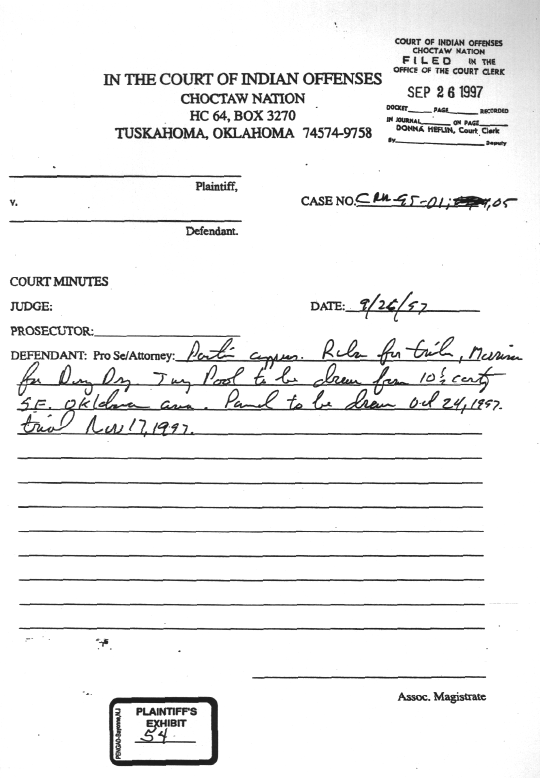 COURT OF INDIAN OFFENSES
CHOCTAW NATION
FILED IN THE
OFFICE OF THE COURT CLERK
SEP 26 1997
DOCKET____ PAGE____ RECORDED
IN JOURNAL____ ON PAGE____
DONNA HEFLIN, Court Clerk
By____ Deputy
IN THE COURT OF INDIAN OFFENSES
CHOCTAW NATION
HC 64, BOX 3270
TUSKAHOMA, OKLAHOMA 74574-9758
Plaintiff,
v.
CASE NO. 95-01, ,05
Defendant.
COURT MINUTES
JUDGE:
DATE: 9/26/97
PROSECUTOR:
DEFENDANT: Pro Se/Attorney: for
for Pool to be from 10
S.E. Oklahoma area. Panel to be draw Oct 24, 1997.
trial Nov 17, 1997.
Assoc. Magistrate
PENGAD-Bayonne, NJ
PLAINTIFF'S
EXHIBIT
54